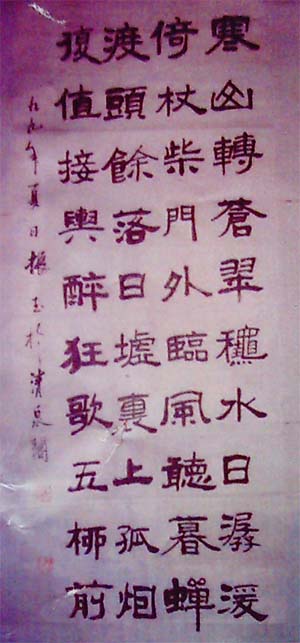 寒山轉蒼翠龝水日潺湲
倚杖柴門外臨風聽暮蟬
渡頭餘落日墟裏上孤烟
復值接輿醉狂歌五柳前
九九年夏日振玉於清泉